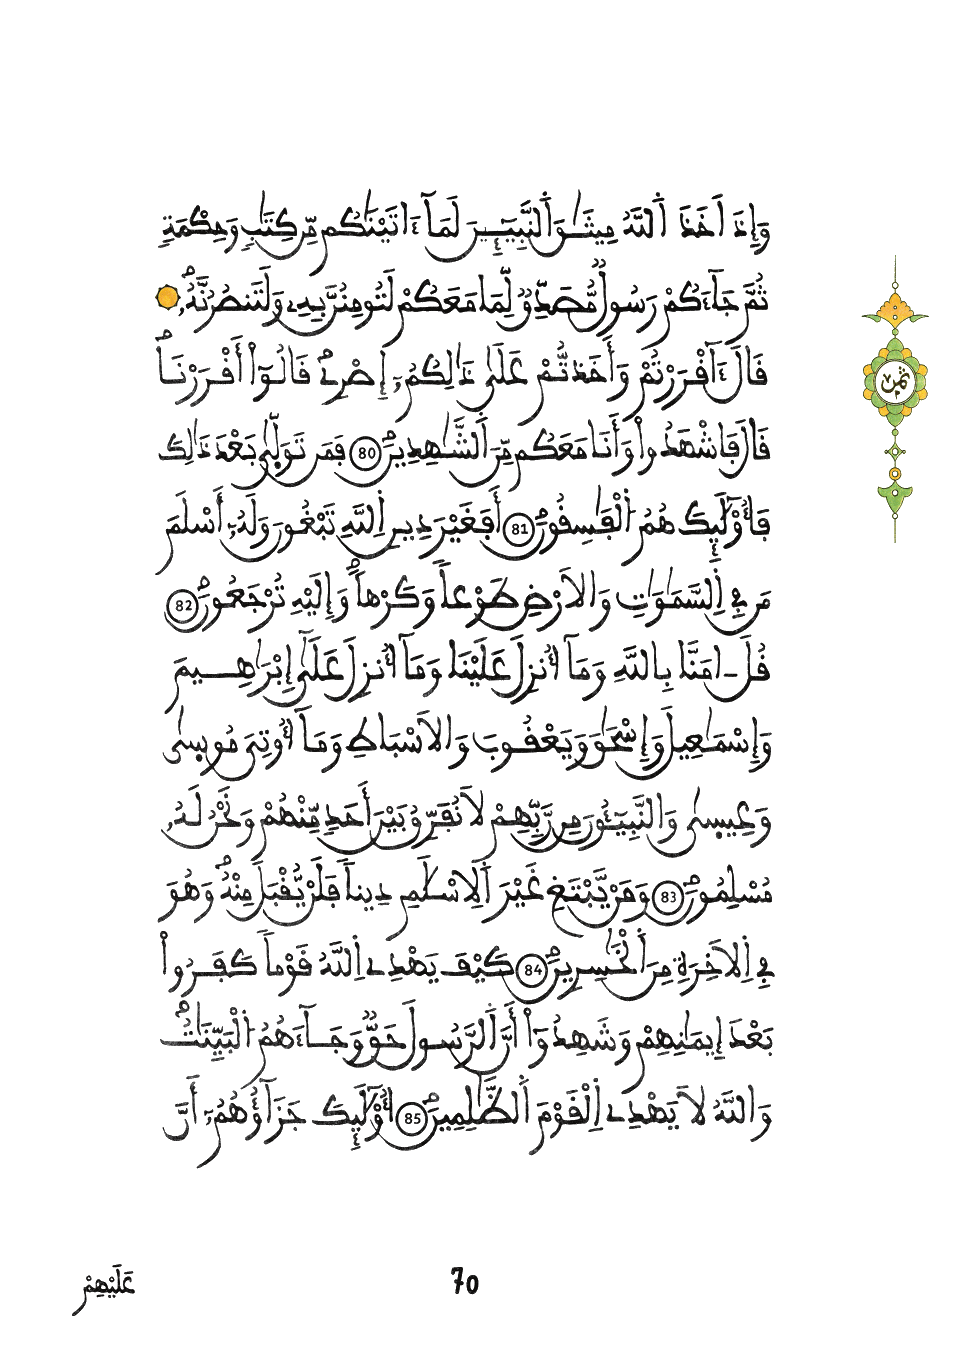 وَإِذَ اَخَذَ اَللَّهُ مِيثَٰقَ اَلنَّبِيٓـِٕينَ لَمَآ ءَاتَيْنَٰكُم مِّن كِتَٰبٍ وَحِكْمَةٍ
ثُمَّ جَآءَكُمْ رَسُولٌ مُّصَدِّقٌ لِّمَا مَعَكُمْ لَتُومِنُنَّ بِهِۦ وَلَتَنصُرُنَّهُۥ
قَالَ ءَآقْرَرْتُمْ وَأَخَذتُّمْ عَلَىٰ ذَٰلِكُمُۥٓ إِصْرِے قَالُوٓاْ أَقْرَرْنَا
قَالَ فَاشْهَدُواْ وَأَنَا مَعَكُم مِّنَ اَلشَّٰهِدِينَ 80 فَمَن تَوَلَّىٰ بَعْدَ ذَٰلِكَ
فَأُوْلَٰٓئِكَ هُمُ اُلْفَٰسِقُونَ 81 أَفَغَيْرَ دِينِ اِللَّهِ تَبْغُونَ وَلَهُۥٓ أَسْلَمَ
مَن فِے اِلسَّمَٰوَٰتِ وَالَارْضِ طَوْعاً وَكَرْهاً وَإِلَيْهِ تُرْجَعُونَ 82
قُلَ ـ امَنَّا بِاللَّهِ وَمَآ أُنزِلَ عَلَيْنَا وَمَآ أُنزِلَ عَلَىٰٓ إِبْرَٰهِيمَ
وَإِسْمَٰعِيلَ وَإِسْحَٰقَ وَيَعْقُوبَ وَالَاسْبَاطِ وَمَآ أُوتِيَ مُوسِىٰ
وَعِيسِىٰ وَالنَّبِيٓـُٔونَ مِن رَّبِّهِمْ لَا نُفَرِّقُ بَيْنَ أَحَدٍ مِّنْهُمْ وَنَحْنُ لَهُۥ
مُسْلِمُونَ 83 وَمَنْ يَّبْتَغِ غَيْرَ اَلِاسْلَٰمِ دِيناً فَلَنْ يُّقْبَلَ مِنْهُ وَهُوَ
فِے اِلَاخِرَةِ مِنَ اَلْخَٰسِرِينَ 84 كَيْفَ يَهْدِے اِللَّهُ قَوْماً كَفَرُواْ
بَعْدَ إِيمَٰنِهِمْ وَشَهِدُوٓاْ أَنَّ اَلرَّسُولَ حَقٌّ وَجَآءَهُمُ اُلْبَيِّنَٰتُ
وَاللَّهُ لَا يَهْدِے اِلْقَوْمَ اَلظَّٰلِمِينَ 85 أُوْلَٰٓئِكَ جَزَآؤُهُمُۥٓ أَنَّ
ثمن
70
عَلَيْهِمْ